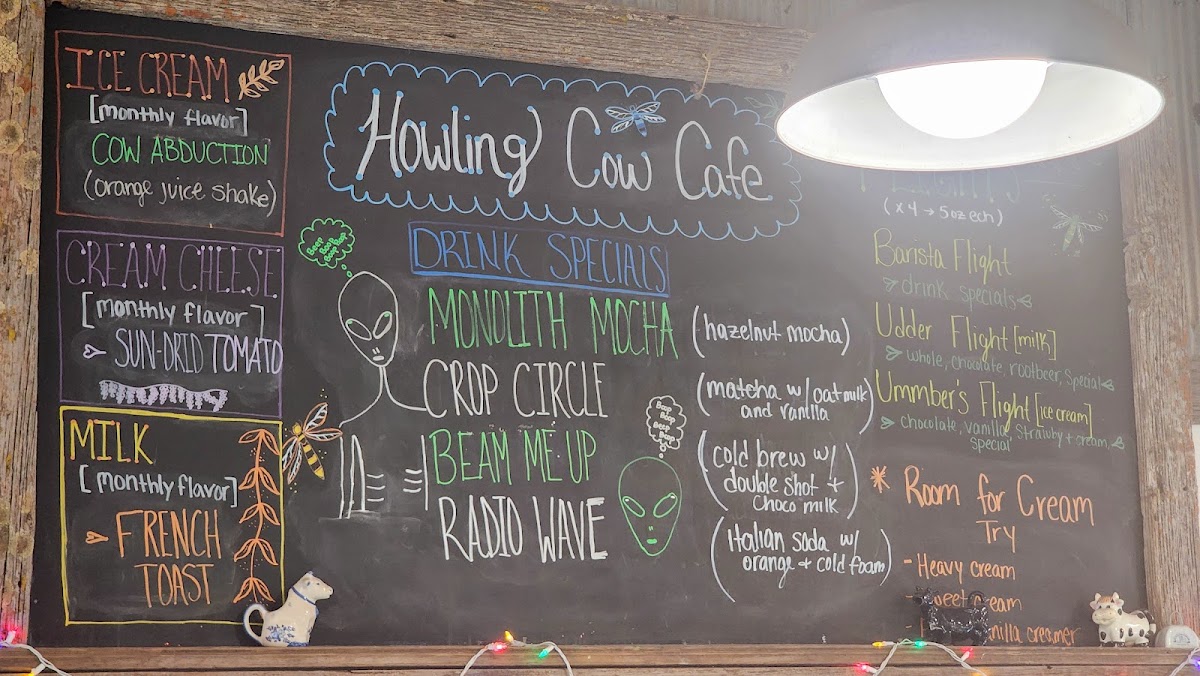 ICE CREAM
[monthly flavor]
COW ABDUCTION
(orange juice shake)
CREAM CHEESE
[monthly flavor]
SUN-DRID TOMATO
MILK
[monthly flavor]
FRENCH
TOAST
Howling Cow Cafe
DRINK SPECIALS
Beep
Boop
Boop Boop
MONOLITH MOCHA (hazelnut mocha)
CROP CIRCLE (matcha w/ oat milk
and vanilla)
BEAM ME UP (cold brew w/
double shot +
choco milk)
RADIO WAVE (Italian soda w/
orange + cold foam)
Boop
Boop
Beep
Boop
(x 4 → 5oz ech)
Barista Flight
drink specials
Udder Flight [milk]
whole, chocolate, rootbeer, special
Ummber's Flight [ice cream]
chocolate, vanilla, strawby + cream,
special
* Room for Cream
Try
- Heavy cream
sweet cream
vanilla creamer